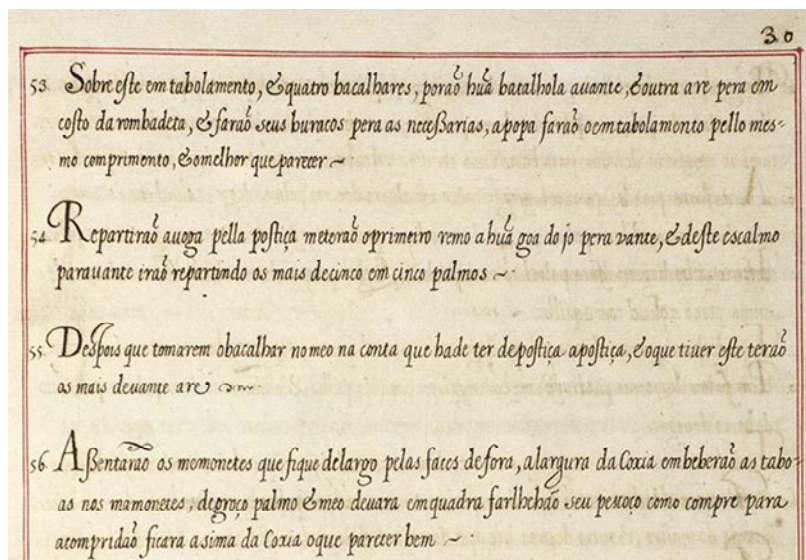 30
53 Sobre este emtabolamento, & quatro bacalhares, poraõ hũa batalhola auante, & outra are pera em
costo da rombadeta, & faraõ seus buracos pera as neceßarias, apopa faraõ oemtabolamento pello mes-
mo comprimento, & omelhor que parecer ~
54. Repartiraõ auoga pella postiça meteraõ oprimeiro remo a hũa goa do jo pera vante, & deste escalmo
parauante iraõ repartindo os mais decinco em cinco palmos ~
55. Despois que tomarem obacalhar no meo na conta que hade ter depostica apostiça, & oque tiuer este teraõ
os mais deuante are
56. Aßentaraõ os memonetes que fique delargo pelas faces defora, alargura da Coxia embeberaõ as tabo-
as nos mamonetes, degroço palmo & meo deuara emquadra farlhehaõ seu pescoço como compre para
acompridaõ ficara asima da Coxia oque parecer bem ~